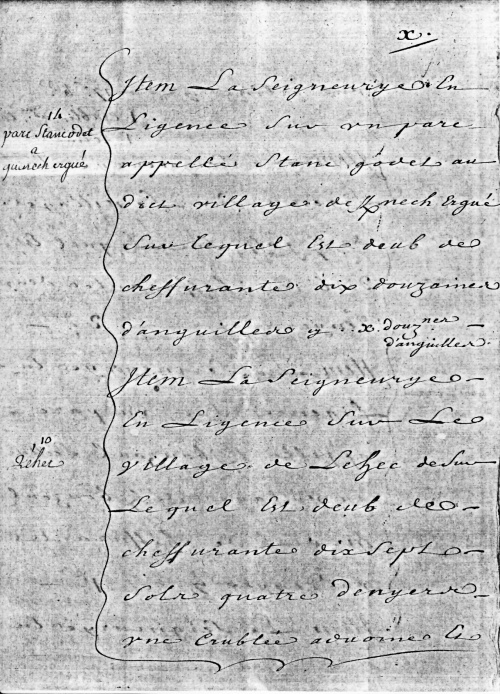 x.
14
parc Stancodet
a
quinech ergué
Item La Seigneurye En
Ligence Sur vn parc
appellé Stanc godet au
dict village de Knech Ergué
Sur lequel Est deub de
cheffrante dix douzaines
d'anguilles cy x. douznes
d'anguilles.
Item La Seigneurye
En Ligence Sur Le
10
village de Lehec de Sur
Lequel Est deub de
cheffrante dix Sept
Sols quatre denyers
vne Crublée advoine &